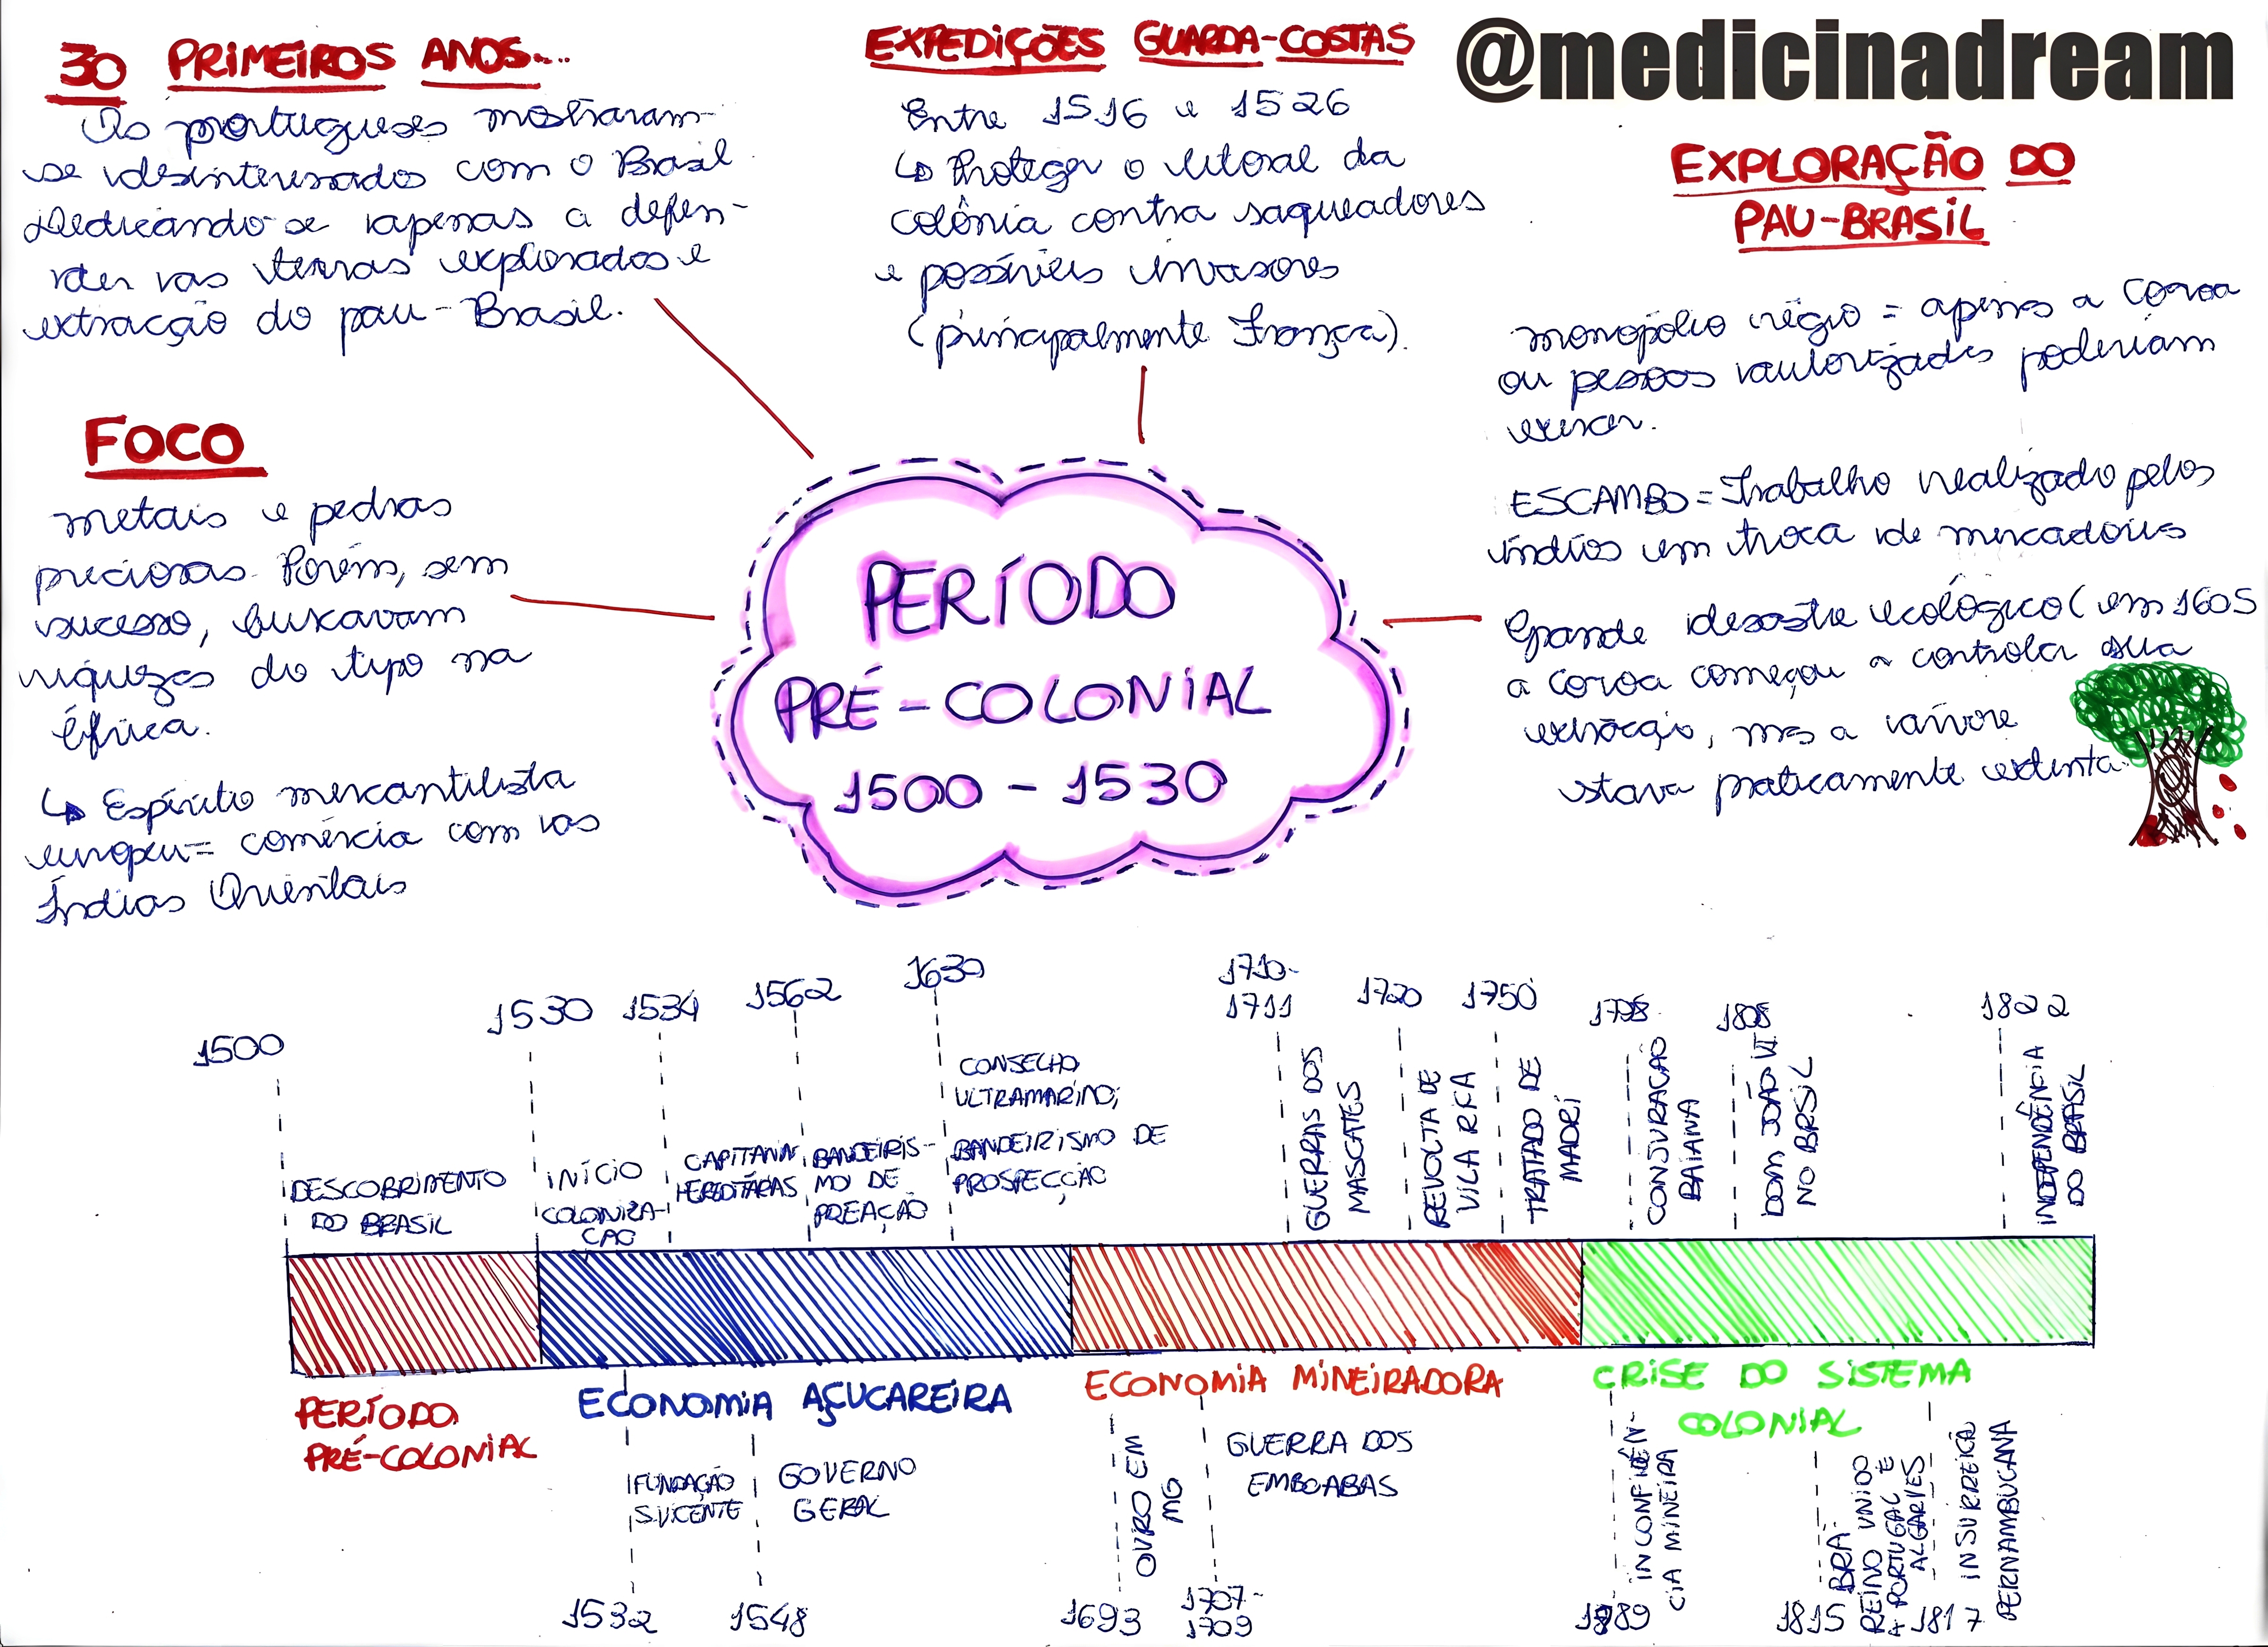 30 PRIMEIROS ANOS...
Os portugueses mostraram-
se desinteressados com o Brasil
Dedicando-se apenas a defen-
der as terras explorados e
extracção do pau-Brasil.
FOCO
metais e pedras
preciosas. Porém, sem
sucesso, buscavam
riquezas do tipo na
África.
↳ Espírito mercantilista
europeu = comércia com as
Índias Orientais
EXPEDIÇÕES GUARDA-COSTAS
Entre 1516 e 1526
↳ Proteger o litoral da
colônia contra saqueadores
e possíveis invasores
(principalmente França).
@medicinadream
EXPLORAÇÃO DO
PAU-BRASIL
monopólio régio = apenas a Coroa
ou pessoas autorizadas poderiam
exercer.
ESCAMBO = Trabalho realizado pelos
índios em troca de mercadorias
Grande desastre ecológico (em 1605
a coroa começou a controlar sua
extracção, mas a árvore
estava praticamente extinta
PERÍODO
PRÉ-COLONIAL
1500 - 1530
1500
DESCOBRIMENTO
DO BRASIL
1530
INÍCIO
COLONIZA-
ÇÃO
1534
CAPITANIA
HEREDITÁRIAS
1562
BANDEIRIS-
MO DE
PREAÇÃO
1630
CONSELHO
ULTRAMARINO;
BANDEIRISMO DE
PROSPECÇÃO
1710-
1711
GUERRAS DOS
MASCATES
1720
REVOLTA DE
VILA RICA
1750
TRATADO DE
MADRI
1798
CONJURAÇÃO
BAIANA
1808
DOM JOÃO VI
NO BRSIL
1822
INDEPENDÊNCIA
DO BRASIL
PERÍODO
PRÉ-COLONIAL
ECONOMIA AÇUCAREIRA
ECONOMIA MINEIRADORA
CRISE DO SISTEMA
COLONIAL
FUNDAÇÃO
S. VICENTE
1532
GOVERNO
GERAL
1548
OURO EM
MG
1693
GUERRA DOS
EMBOABAS
1707-
1709
INCONFIDÊN-
CIA MINEIRA
1789
BRA
REINO UNIDO
A PORTUGAL E
ALGARVES
1815
INSURREIÇÃ
PERNAMBUCANA
1817